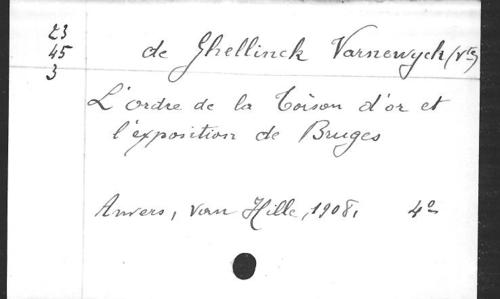 23
45
3
de Ghellinck Varnewyck (Vte)
L'ordre de la Toison d'or et
l'exposition de Bruges
Anvers, van Hille, 1908. 4º